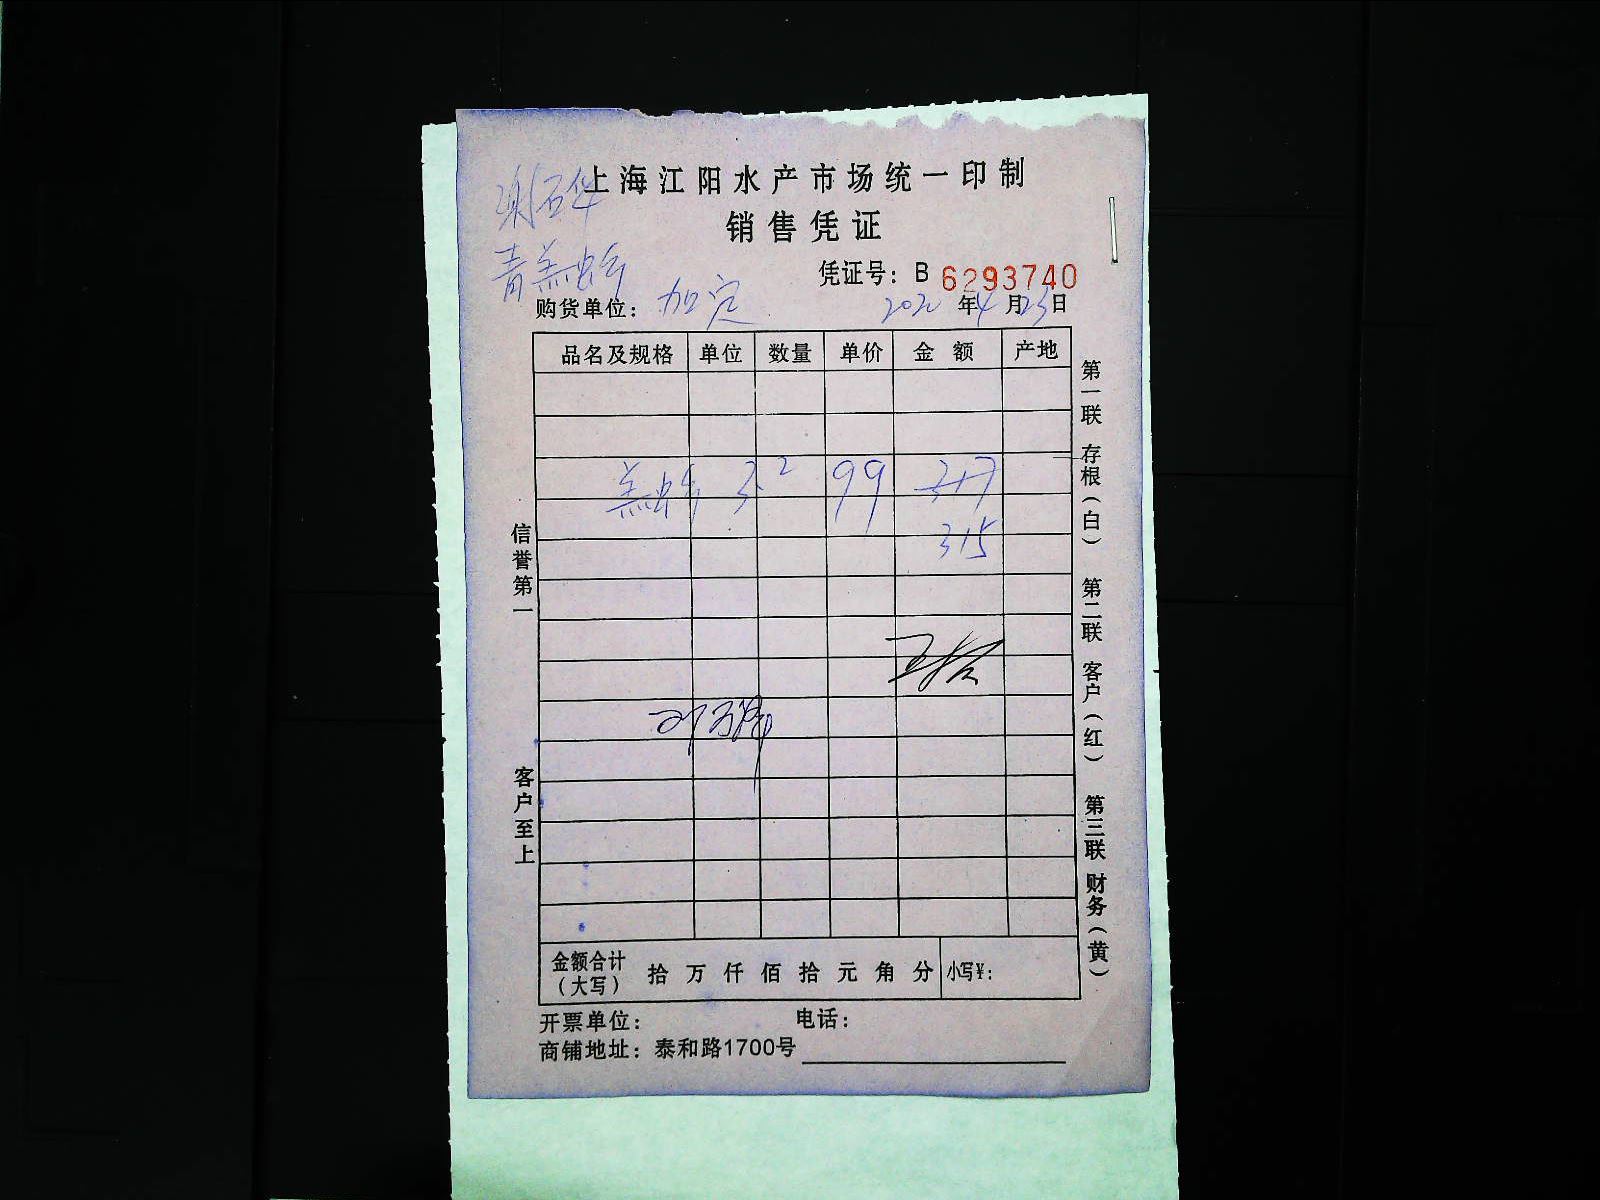 上海江阳水产市场统一印制
谢石华
销售凭证
青羔蚧
凭证号：B 6293740
购货单位：加定 2020年4月23日
品名及规格 单位 数量 单价 金额 产地
羔蚧 3.2 99 317
315
信誉第一
客户至上
第一联 存根（白） 第二联 客户（红） 第三联 财务（黄）
金额合计（大写） 拾万仟佰拾元角分 小写¥：
开票单位： 电话：
商铺地址：泰和路1700号